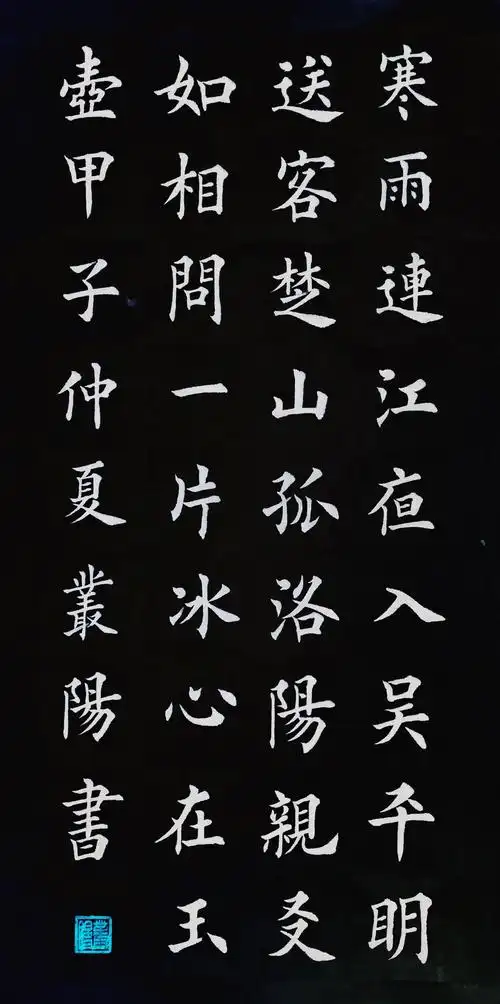 寒雨連江夜入吳平明
送客楚山孤洛陽親友
如相問一片冰心在玉
壺甲子仲夏叢陽書